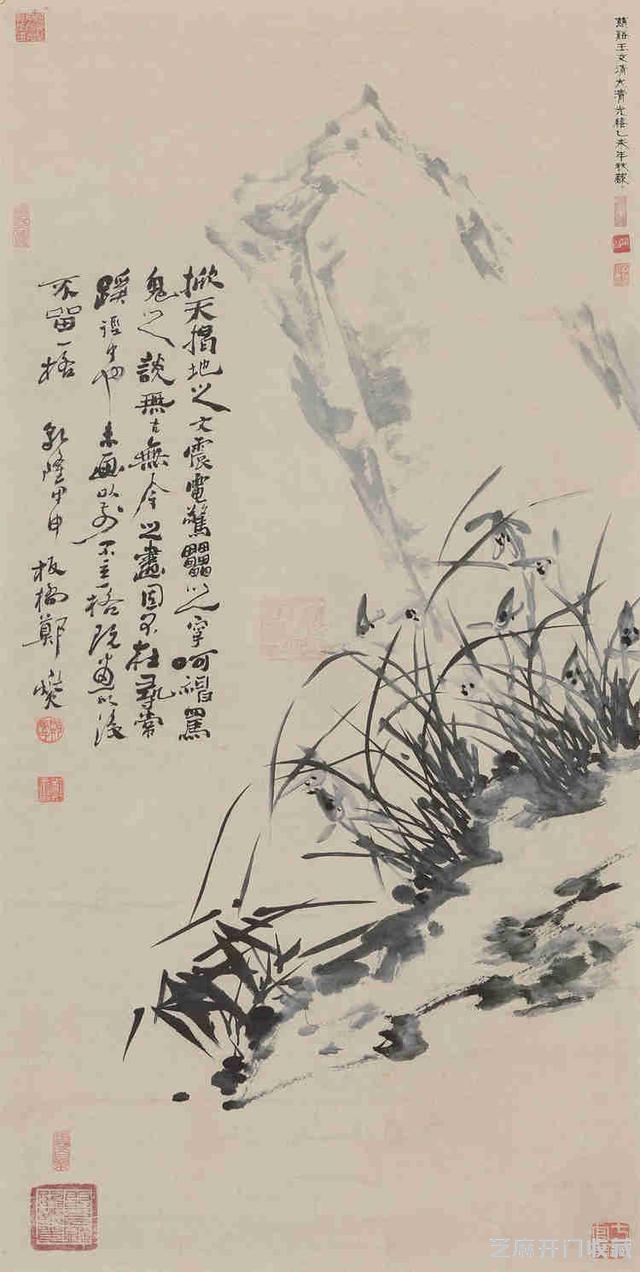 蘭谿王文清大清光緒乙未年秋藏
掀天揭地之文震電驚靁之字呵神罵
鬼之談無古無今之畫固不在尋常
蹊徑中也未畫以前不立一格既畫以後
不留一格 乾隆甲申 板橋鄭燮
芝麻开门收藏